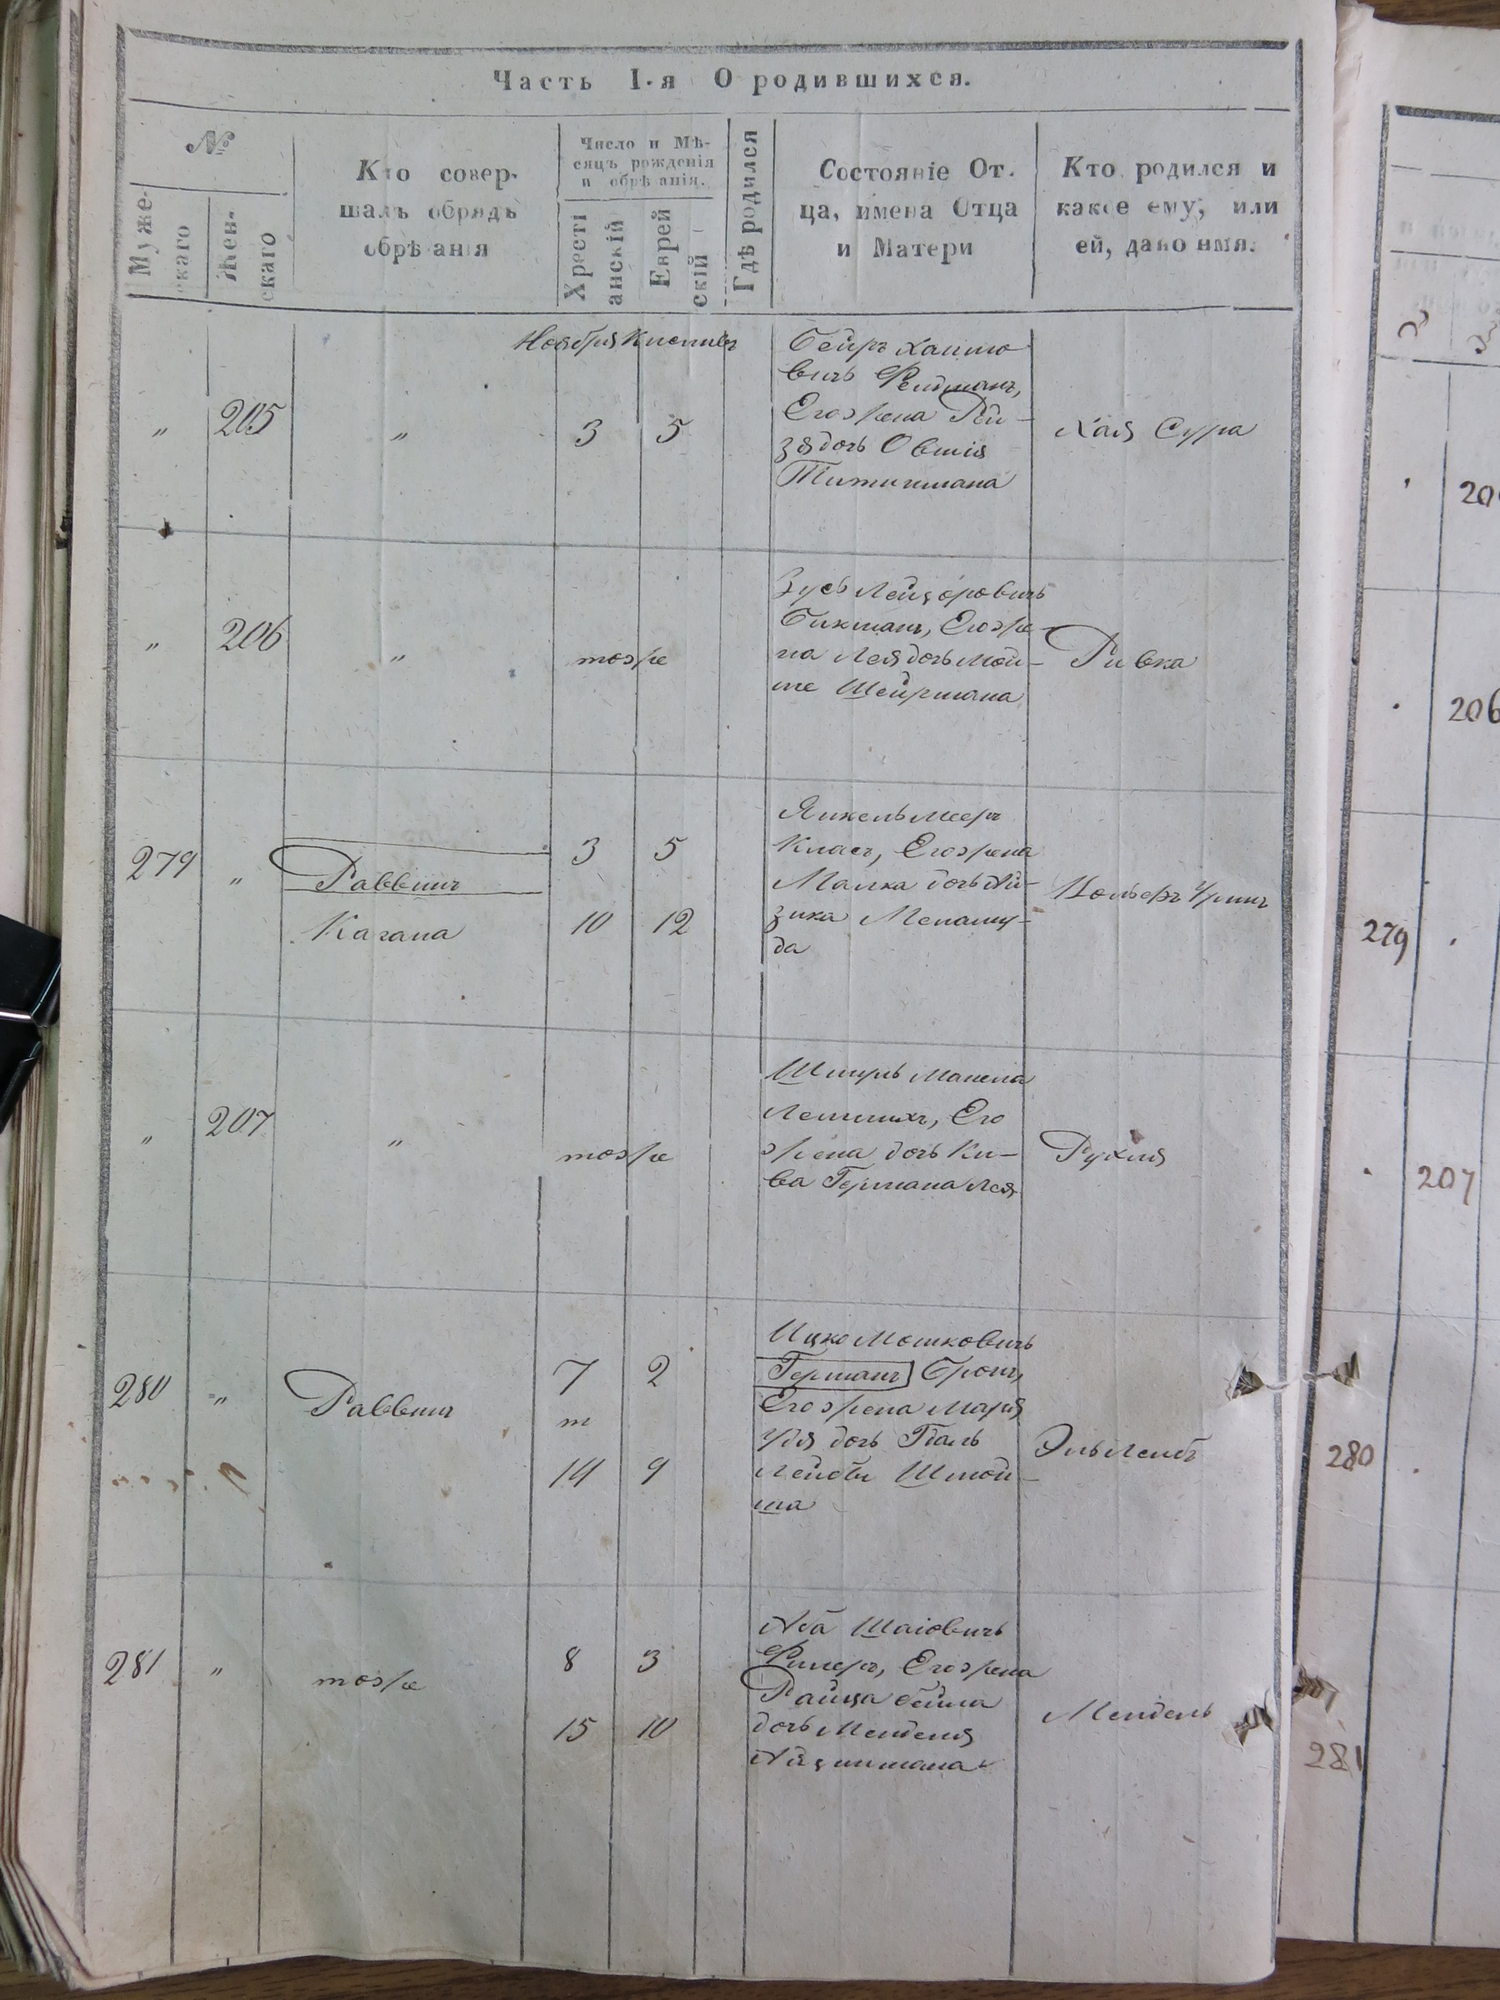 Часть I-я О родившихся.
№
Мужескаго
Женскаго
Кто совер-
шалъ обрядъ
обрѣзанія
Число и Мѣ-
сяцъ рожденія
и обрѣзанія.
Хрестіанскій
Еврейскій
Гдѣ родился
Состояніе От-
ца, имена Отца
и Матери
Кто родился и
какое ему, или
ей, дано имя.
Ноября Кисливъ
" 205 " 3 5
Бейръ Хаимо
вичъ Фельдманъ,
Его жена Рей-
зя дочь Овшія
Хая Сура
" 206 " тоже
Зусь Лейзоровичъ
Бикманъ, Его же-
на Лея дочь Мой-
ше
Ривка
279 " Раввинъ
Кагана
3 5
10 12
Янкель Меер
Класъ, Его жена
Малка дочь Ай-
зика
да
" 207 " тоже
Шмуль
Его
жена дочь Ки-
ва Германа Лея
Рухля
280 " Раввинъ
7 2
т
14 9
Ицко Мошковичъ
Германъ Бронъ,
Его жена Маря
дочь
Лейбы Шмой-
ша
281 " тоже
8 3
15 10
Аба Шаіовичъ
Его жена
Райца Бейла
дочь Менделя
Мендель
206
279
207
280
281